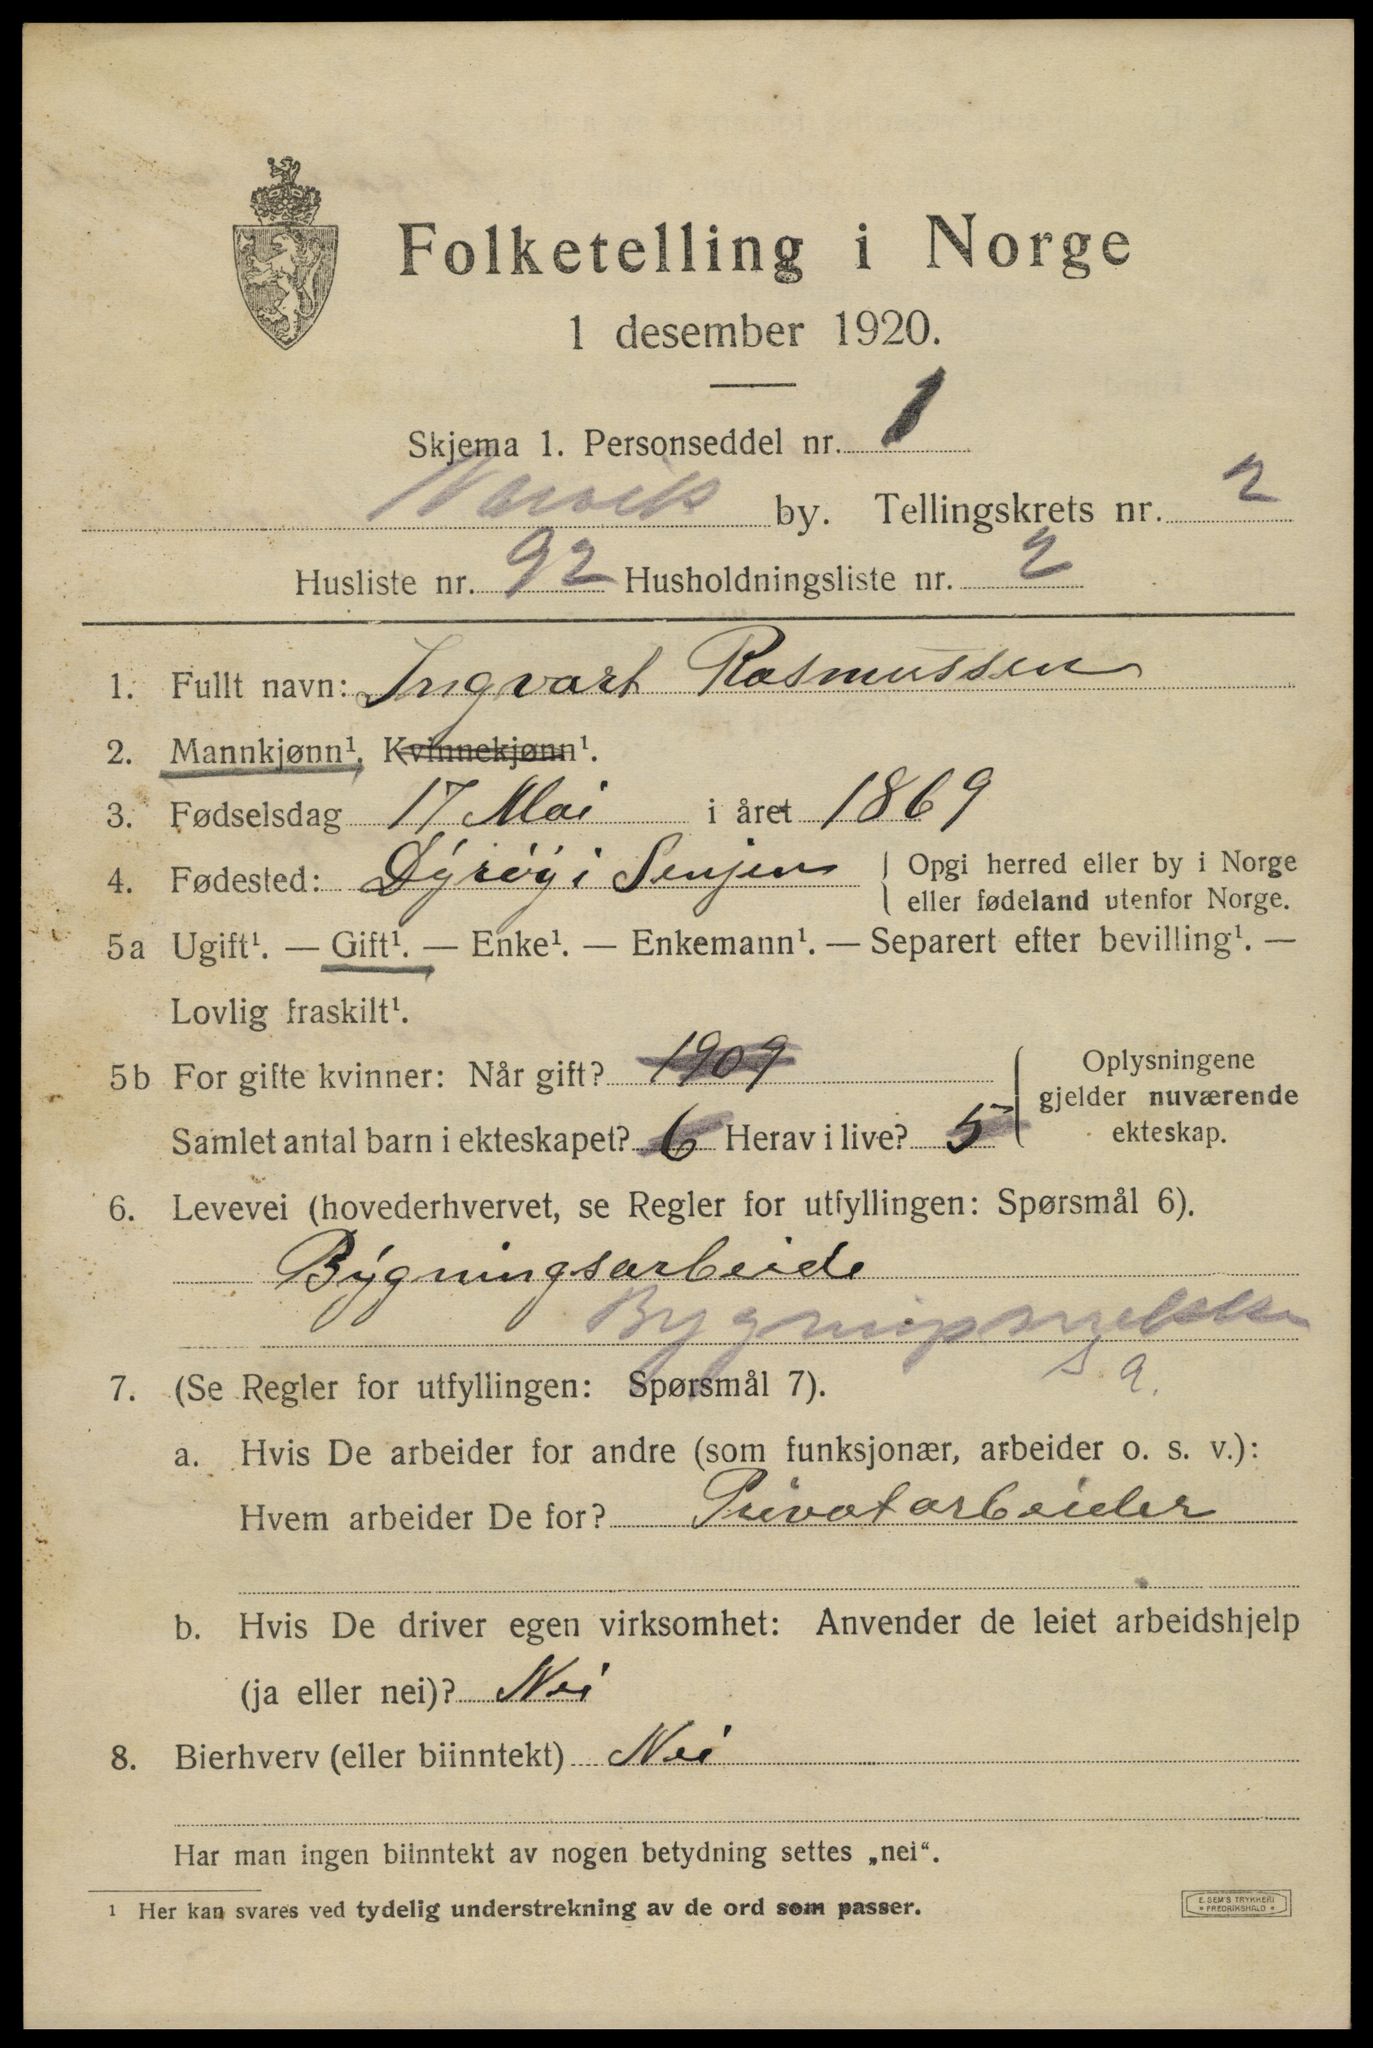 Folketelling i Norge
1 desember 1920.
Skjema 1. Personseddel nr. 1
Narvik by. Tellingskrets nr. 2
Husliste nr. 92 Husholdningsliste nr. 2
1. Fullt navn: Ingvart Rasmussen
2. Mannkjønn¹, Kvinnekjønn¹.
3. Fødselsdag 17 Mai i året 1869
4. Fødested: Dyrøy i Senjen { Opgi herred eller by i Norge
eller fødeland utenfor Norge.
5a Ugift¹. — Gift¹. — Enke¹. — Enkemann¹. — Separert efter bevilling¹. —
Lovlig fraskilt¹.
5b For gifte kvinner: Når gift? 1909
Samlet antal barn i ekteskapet? 6 Herav i live? 5
Oplysningene
gjelder nuværende
ekteskap.
6. Levevei (hovederhvervet, se Regler for utfyllingen: Spørsmål 6).
Bygningsarbeide
7. (Se Regler for utfyllingen: Spørsmål 7).
a. Hvis De arbeider for andre (som funksjonær, arbeider o. s. v.):
Hvem arbeider De for? Privatarbeider
b. Hvis De driver egen virksomhet: Anvender de leiet arbeidshjelp
(ja eller nei)? Nei
8. Bierhverv (eller biinntekt) Nei
Har man ingen biinntekt av nogen betydning settes „nei“.
¹ Her kan svares ved tydelig understrekning av de ord som passer.
E. SEM'S TRYKKERI
* FREDRIKSHALD *